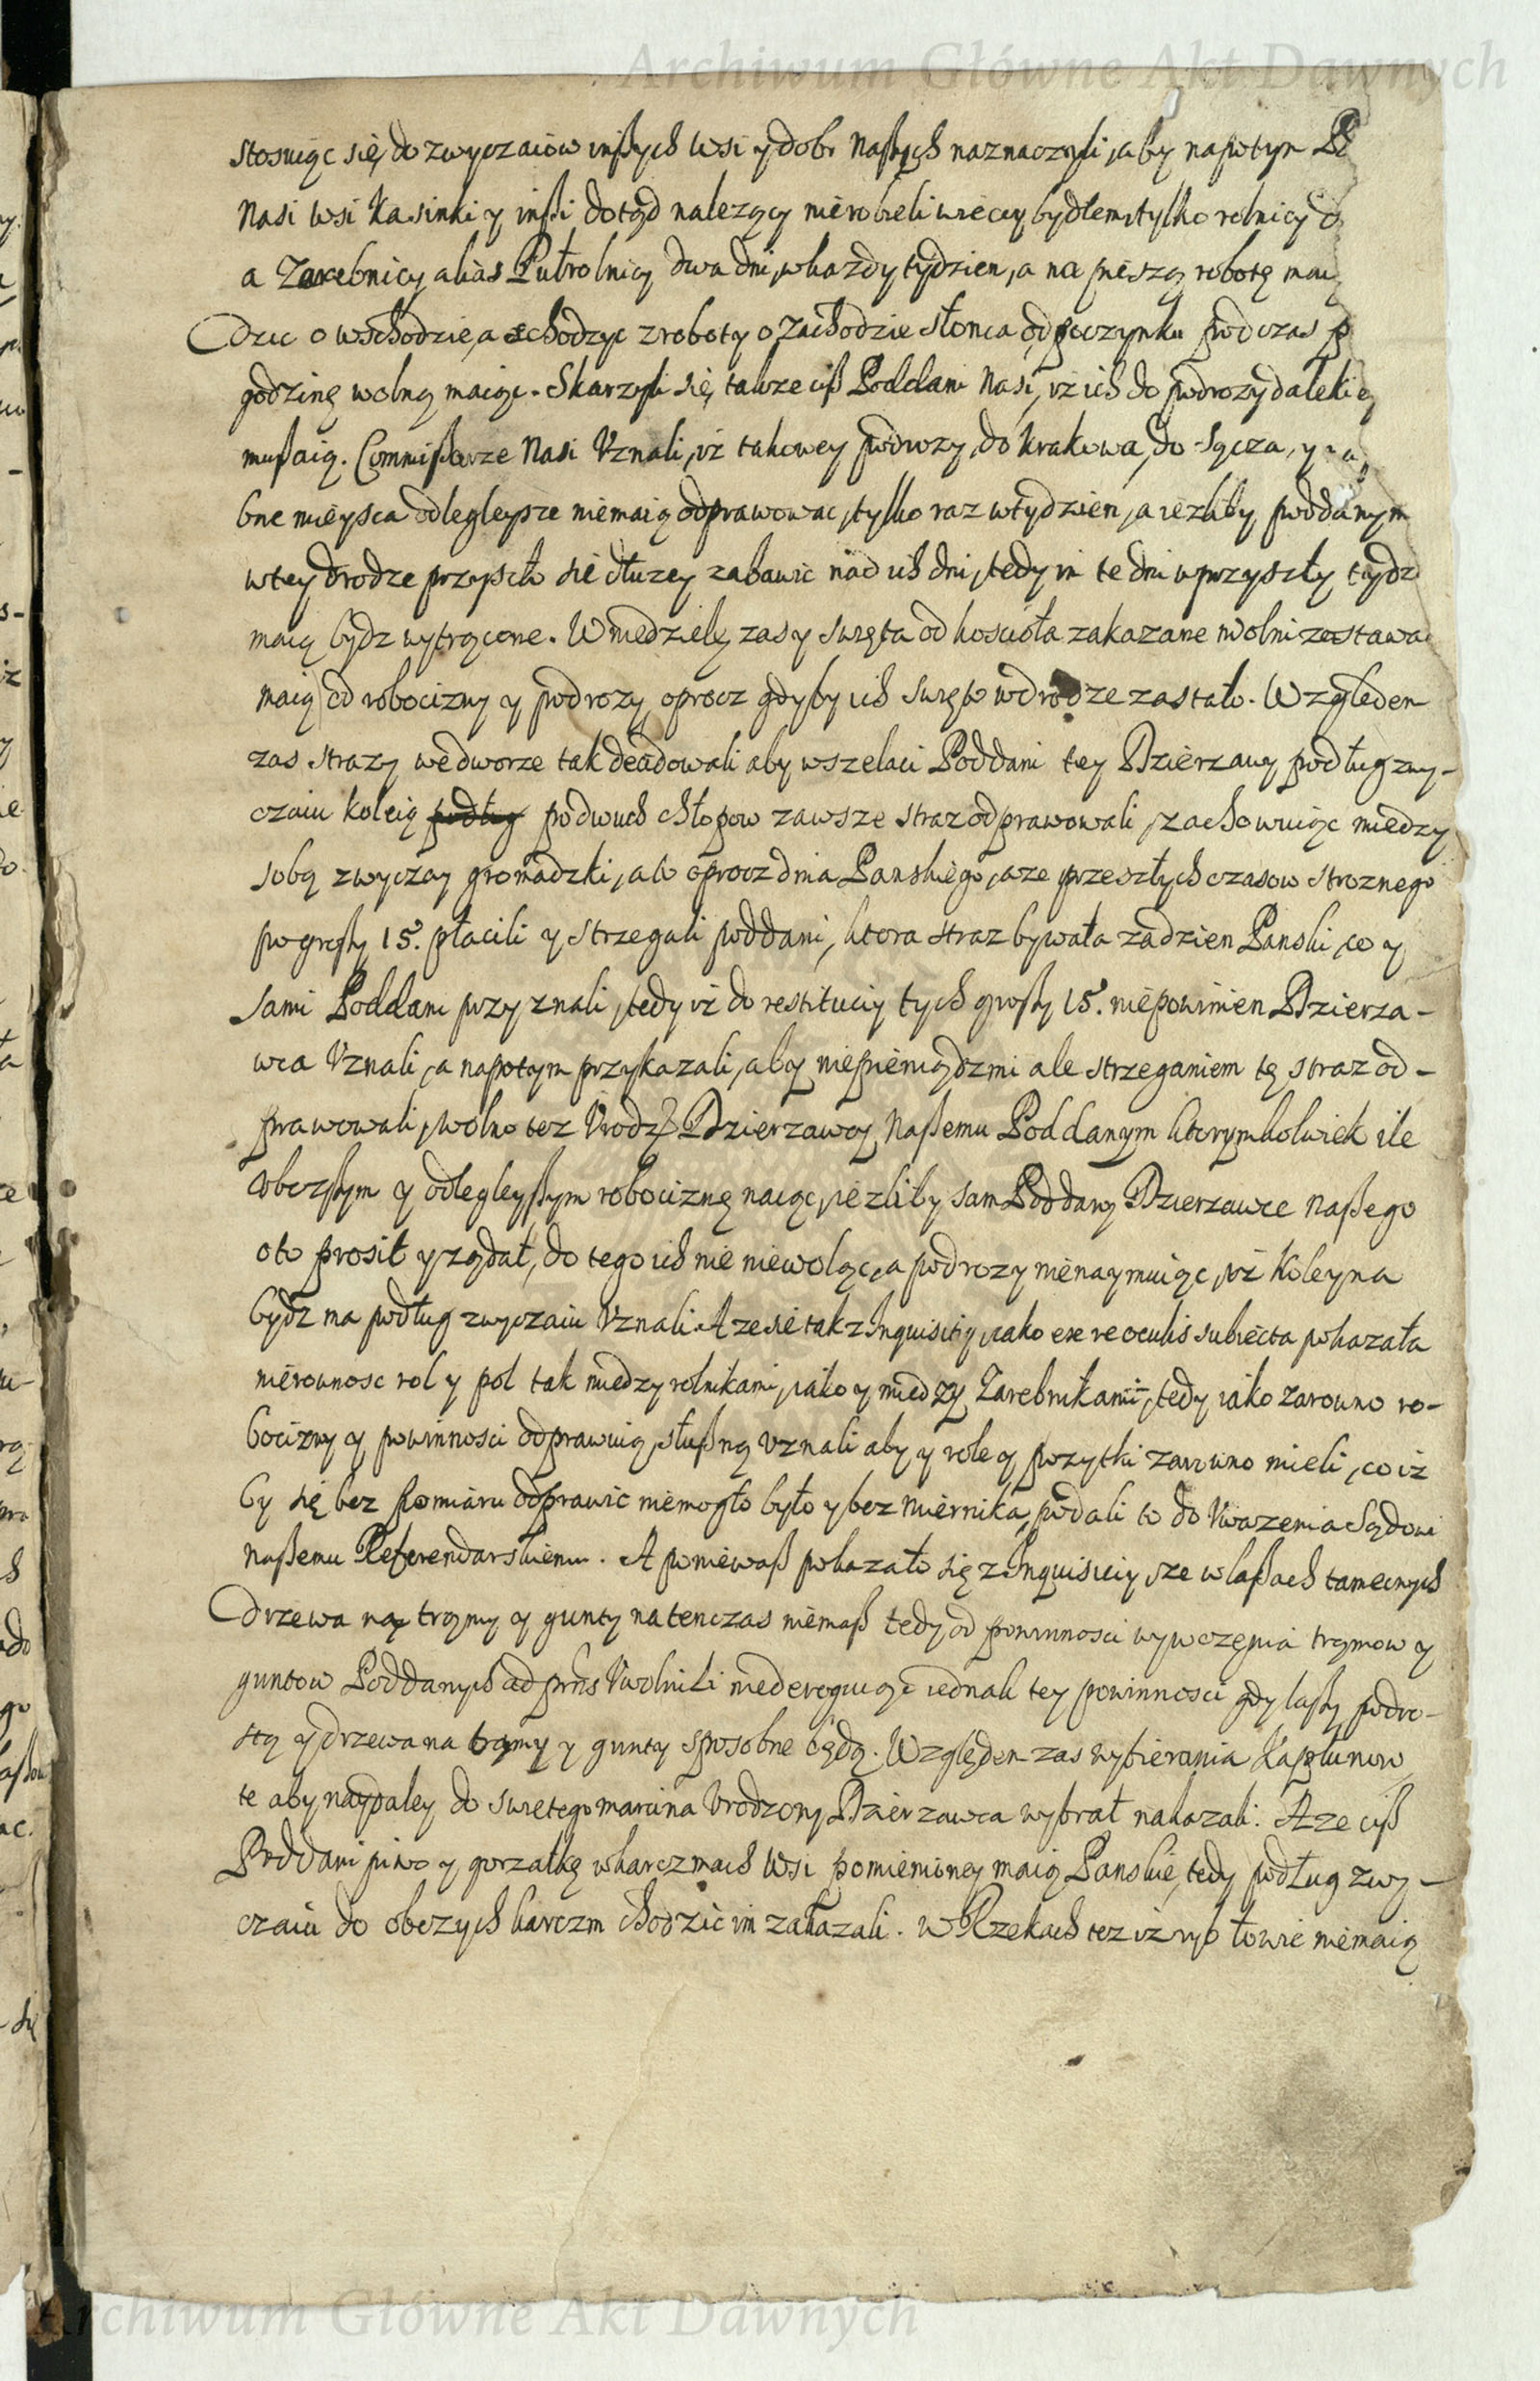 Archiwum Główne Akt Dawnych
stosuiąc się do zwyczaiow inßych wsi y dobr Naßych naznaczyli, aby napotym P
Nasi wsi Kasinki y inßi dotąd nalezący nierobieli wiecey bydłem, tylko rolnicy
a Zarebnicy alias Pułrolnicy dwa dni w kazdy tydzien, a na pieszą robotę maią
dzic o wschodzie, a schodzyc z roboty o zachodzie słonca, odpoczynku podczas p
godzinę wolną maiąc. Skarzyli się takze ciß Poddani Nasi, iz ich do podrozy dalekiey
mußaią. Commißarze Nasi Uznali, iz takowey podrozy, do Krakowa, do Sącza, y
bne mieysca odlegleysze niemaią odprawowac, tylko raz w tydzien, a iezliby poddanym
w tey drodze przyszło sie dłuzey zabawic nad ich dni, tedy im te dni w przyszły tydz
maią bydz wytrącone. W niedzielę zas y swięta od koscioła zakazane wolni zostawa
maią od robocizny y podrozy, oprocz gdyby ich swięto w drodze zastało. Względem
zas strazy we dworze tak decidowali aby wszelaci Poddani tey Dzierzawy podług zwy-
czaiu koleią podług po dwuch chłopow zawsze straz odprawowali, zachowuiąc między
sobą zwyczay gromadzki, a to oprocz dnia Panskiego, a ze przeszłych czasow stroznego
po groszy 15. płacili y strzegali poddani, ktora straz bywała za dzien Panski, co y
sami Poddani przyznali, tedy iz do restituciy tych groszy 15. niepowinien Dzierza-
wca Uznali, a napotym przykazali, aby niepieniądzmi ale strzeganiem tę straz od-
prawowali, wolno tez Urodz. Dzierzawcy Naßemu Poddanym ktorymkolwiek ile
obczßym y odlegleyßym robociznę naiąc, iezliby sam Poddany Dzierzawce Naßego
oto prosił y ządał, do tego ich nie niewoląc, a podrozy nienaymuiąc, iz koleyna
bydz ma podług zwyczaiu Uznali. A ze sie tak z Inquisitiy, iako ex re oculis subiecta pokazała
nierownosc rol y pol tak miedzy rolnikami, iako y miedzy Zarebnikami, tedy iako zarowno ro-
bocizny y powinnosci odprawuią, słußną uznali aby y role y pozytki zarowno mieli, co iz
by się bez pomiaru odprawic niemogło było y bez miernika, podali to do uwazenia Sądowi
naßemu Referendarskiemu. A poniewaß pokazało się z Inquisiciy, ze w laßach tamecznych
drzewa na tramy y gunty natenczas niemaß tedy od powinnosci wywozenia tramow y
guntow Poddanych ad prns Uwolnili niederoguiąc iednak tey powinnosci gdy laßy podro-
stą y drzewa na tramy y gunty sposobne będą. Względem zas wybierania Kapłunow
te aby naydaley do swietego marcina Urodzony Dzierzawca wybrał nakazali. A ze ciß
Poddani piwo y gorzałkę w karczmach wsi pomienioney maią Panskie, tedy podług zwy-
czaiu do obczych karczm chodzic im zakazali. W Rzekach tez iz ryb łowic niemaią
Archiwum Główne Akt Dawnych